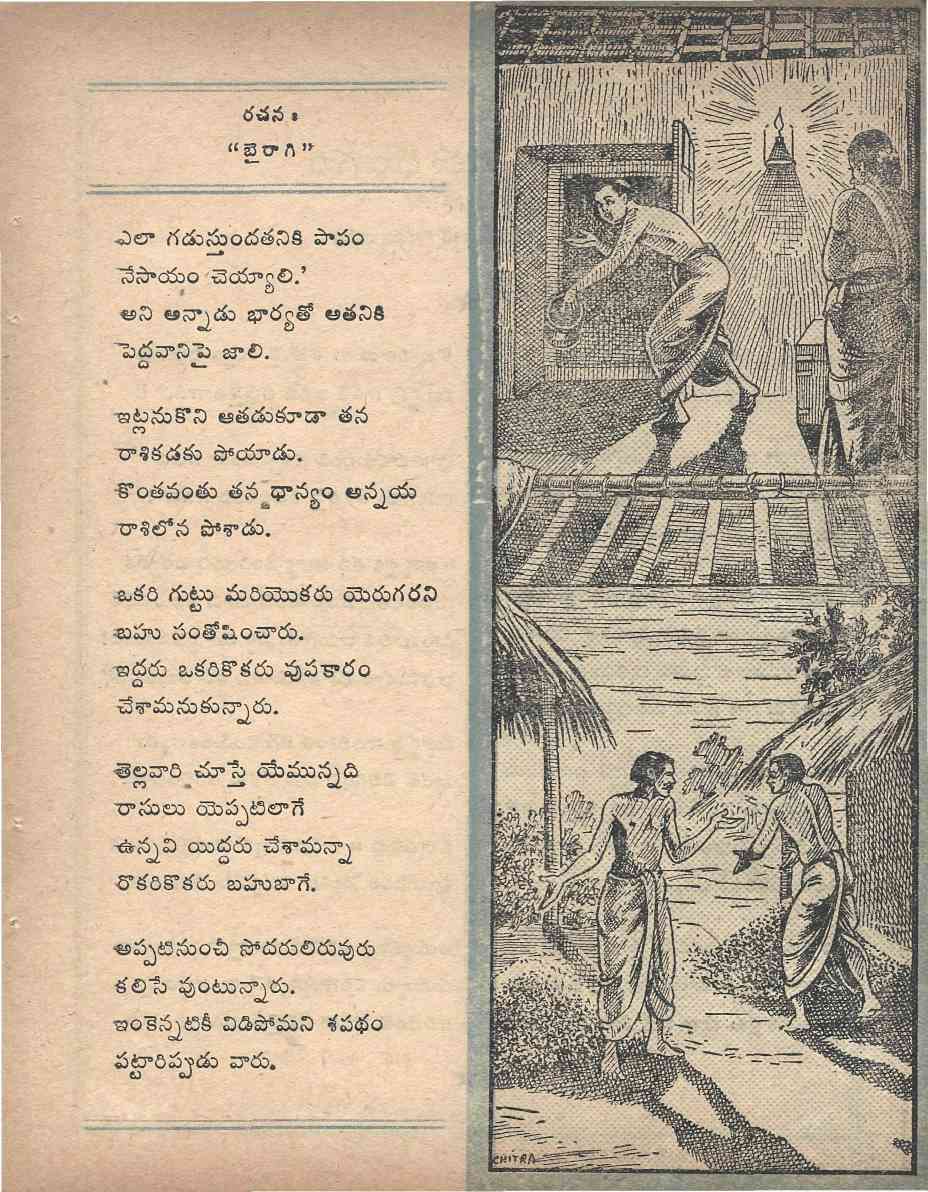 రచన :
“బైరాగి”
ఎలా గడుస్తుందతనికి పాపం
నేసాయం చెయ్యాలి.'
అని అన్నాడు భార్యతో అతనికి
పెద్దవానిపై జాలి.
ఇట్లనుకొని ఆతడుకూడా తన
రాశికడకు పోయాడు.
కొంతవంతు తన ధాన్యం అన్నయ
రాశిలోన పోశాడు.
ఒకరి గుట్టు మరియొకరు యెరుగరని
బహు సంతోషించారు.
ఇద్దరు ఒకరికొకరు వుపకారం
చేశామనుకున్నారు.
తెల్లవారి చూస్తే యేమున్నది
రాసులు యెప్పటిలాగే
ఉన్నవి యిద్దరు చేశామన్నా
రొకరికొకరు బహుబాగే.
అప్పటినుంచీ సోదరులిరువురు
కలిసే వుంటున్నారు.
ఇంకెన్నటికీ విడిపోమని శపథం
పట్టారిప్పుడు వారు.
CHITRA